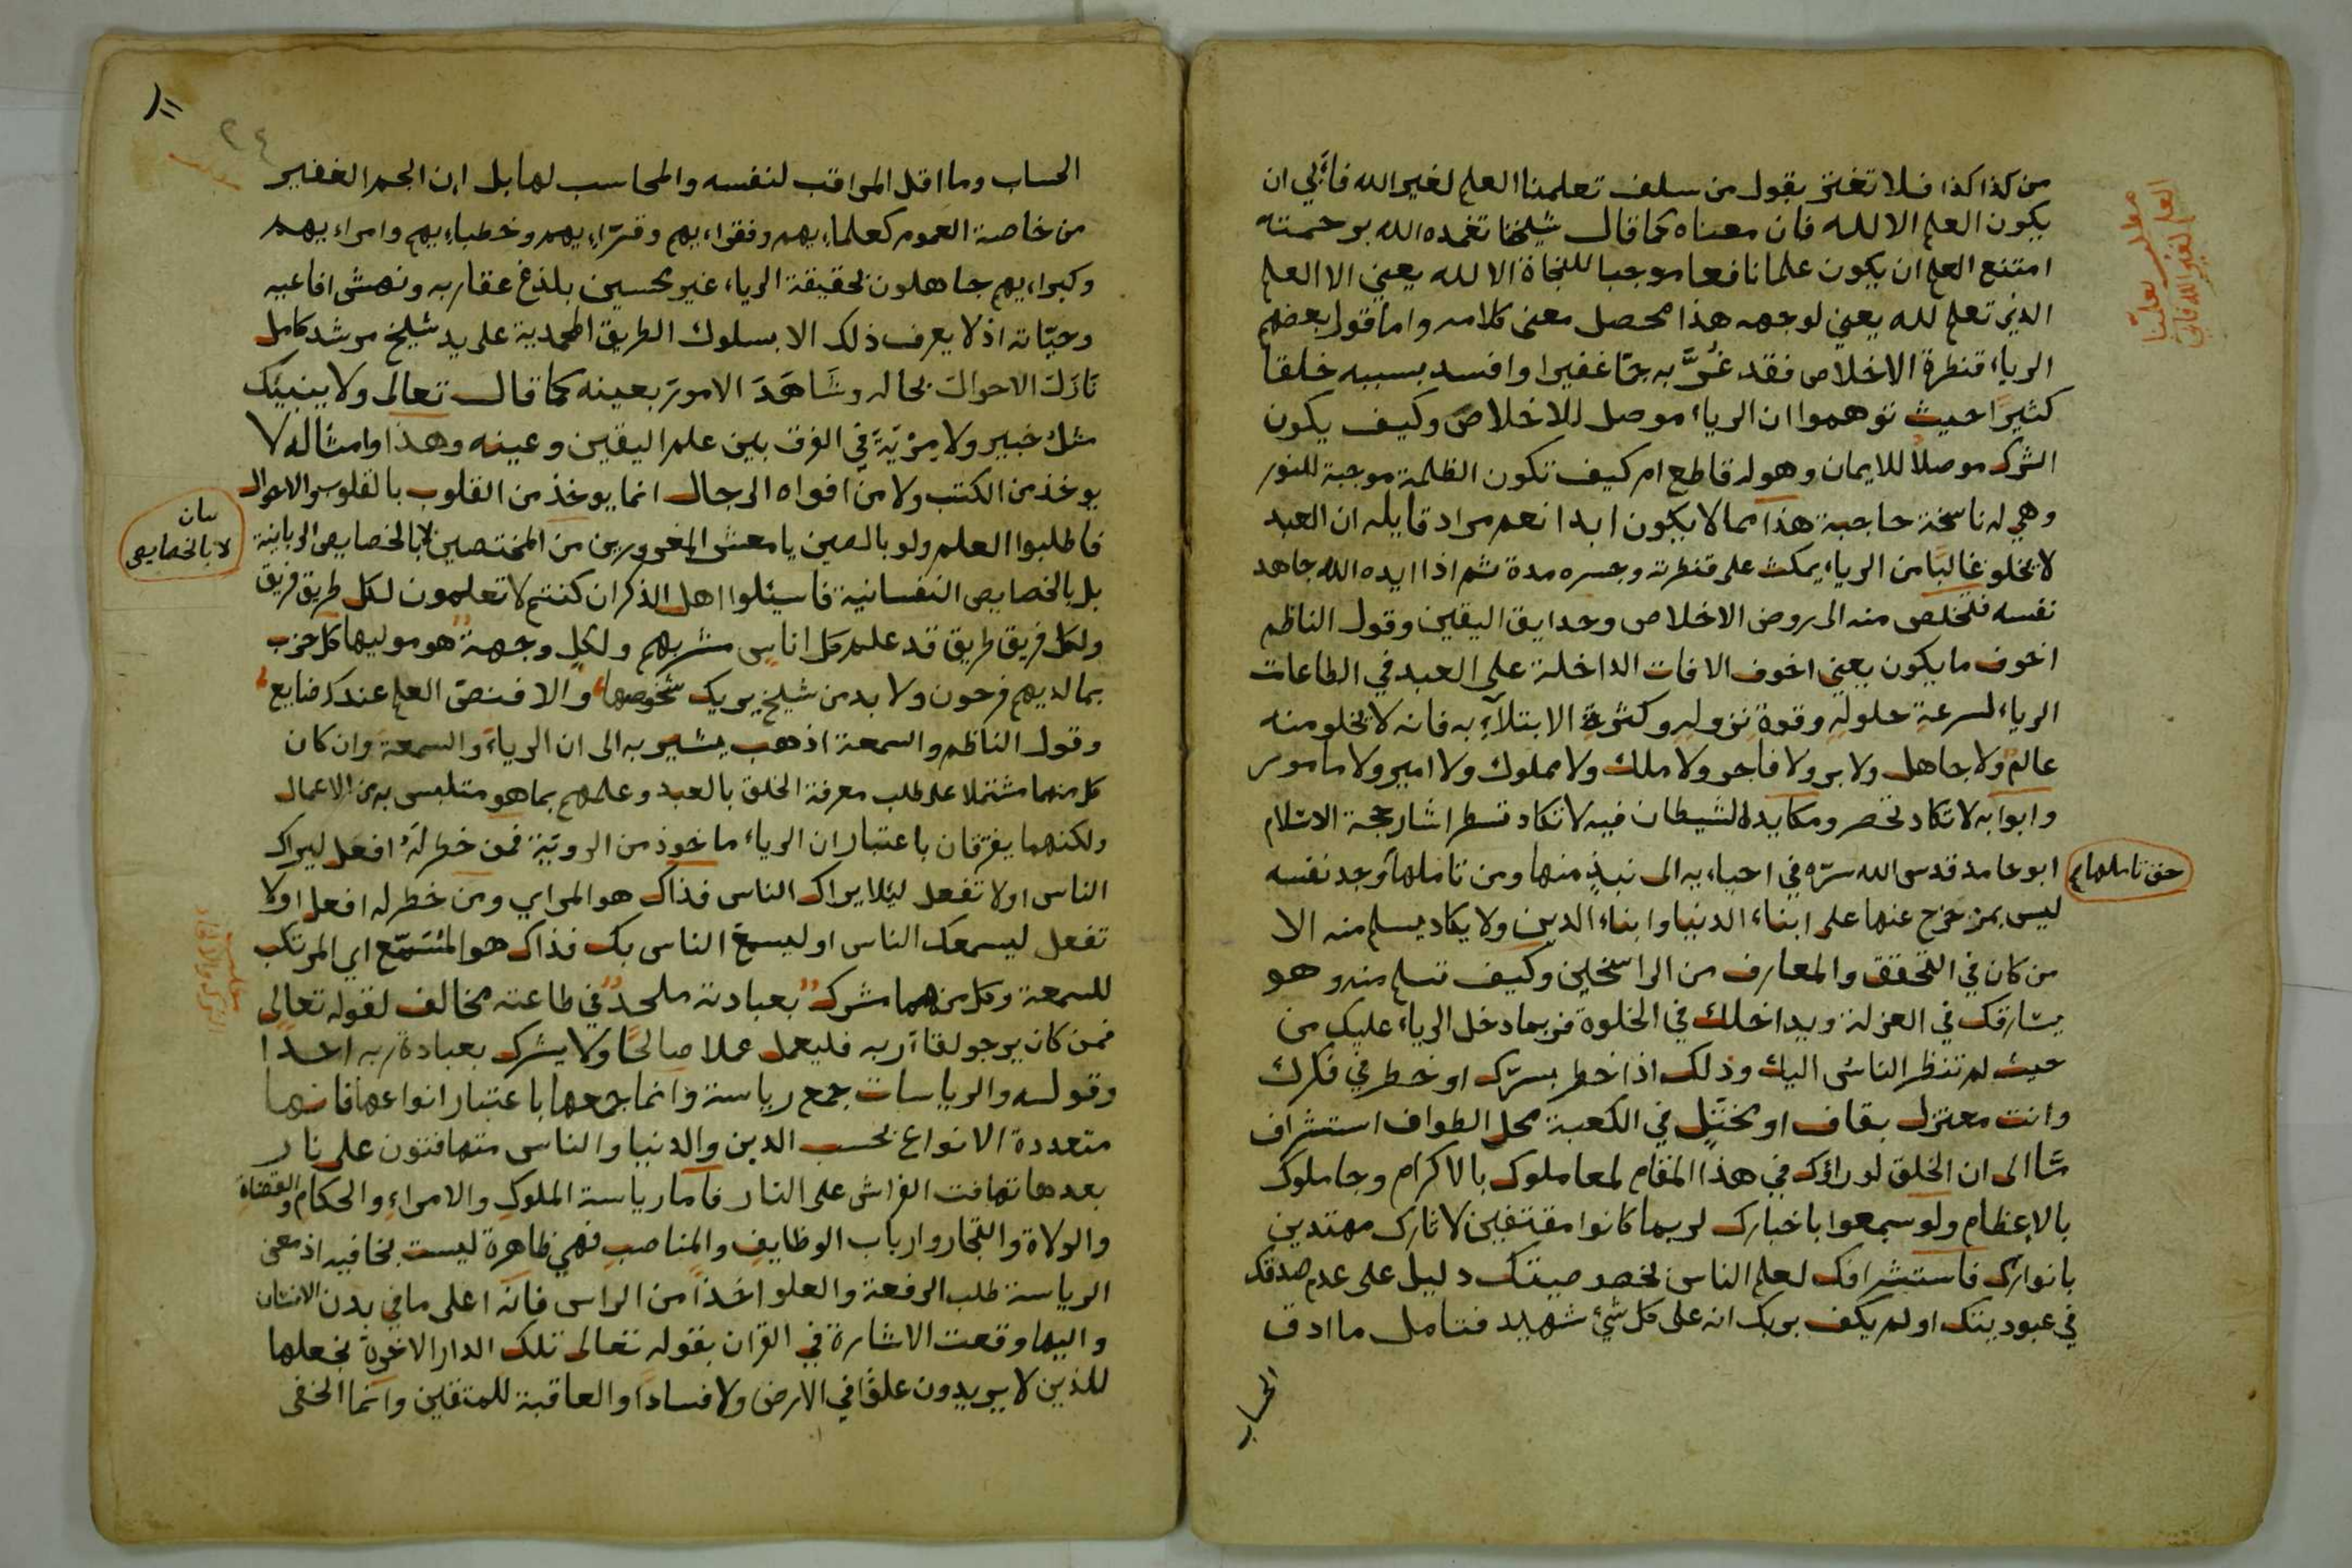 من كذا كذا فلا تغتر بقول من سلف تعلمنا العلم لغير الله فأبى ان
يكون العلم الا لله فان معناه كما قال شيخنا تغمده الله برحمته
امتنع العلم ان يكون علما نافعا موجبا للنجاة الا لله يعني الا العلم
الذي تعلم لله يعني لوجهه هذا محصل معنى كلامه واما قول بعضهم
الرياء قنطرة الاخلاص فقد غُرَّ به جمّا غفيرا وافسد بسببه خلقا
كثيرًا حيث توهموا ان الرياء موصل للاخلاص وكيف يكون
الشرك موصلاً للايمان وهو له قاطع ام كيف تكون الظلمة موجبة للنور
وهي له ناسخة حاجبة هذا مما لا يكون ابدا نعم مراد قايله ان العبد
لا يخلو غالبًا من الرياء يمكث على قنطرته وجسره مدة ثم اذا ايده الله جاهد
نفسه فتخلص منه الى روض الاخلاص وحدايق اليقين وقول الناظم
اخوف ما يكون يعني اخوف الافات الداخلة على العبد في الطاعات
الرياء لسرعةِ حلولهِ وقوةِ نزولهِ وكثرةِ الابتلآءِ به فانه لا يخلو منه
عالم ولا جاهل ولا بر ولا فاجر ولا ملك ولا مملوك ولا امير ولا مامور
وابوابه لا تكاد تحصر ومكايده الشيطان فيه لا تكاد تسطر اشار حجة الاسلام
ابو حامد قدس الله سرّه في احياءيه الى نبذٍ منها ومن تاملها وجد نفسه
حق تاملها صح
ليس بمزحزح عنها على ابناء الدنيا وابناء الدين ولا يكاد يسلم منه الا
من كان في التحقق والمعارف من الراسخين وكيف تسلم منه وهو
يسارقك في العزلة ويداخلك في الخلوة فربما دخل الرياء عليك من
حيث لم تنظر الناس اليك وذلك اذا خطر بسرّك او خطر في فكرك
وانت معتزل بقاف او مختتل في الكعبة محل الطواف استشراف
سّا الى ان الخلق لو راؤك في هذا المقام لعاملوك بالاكرام وجاملوك
بالاعظام ولو سمعوا باخبارك لربما كانوا مقتفين لاثارك مهتدين
بانوارك فاستشرافك لعلم الناس بخصوصيتك دليل على عدم صدقك
في عبوديتك اولم يكف بربك انه على كل شيء شهيد فتامل ما ادق
الحساب
مطلب تعلمنا
العلم لغير الله فابى
٢٤
الحساب وما اقل المراقب لنفسه والمحاسب لها بل ان الجم الغفير
من خاصة العموم كعلماءيهم وفقراءيهم وقرّاءيهم وخطباءيهم وامراءيهم
وكبراءيهم جاهلون بحقيقة الرياء غير محسين بلذغ عقاربه ونهش افاعيه
وحيّاته اذ لا يعرف ذلك الا بسلوك الطريق المحمدية على يد شيخ مرشد كامل
نَازَلَ الاحوالَ بحاله وشَاهَدَ الامورَ بعينه كما قال تعالى ولا ينبيك
مثل خبير ولا مِرْيَةَ في الفرق بين علم اليقين وعينه وهذا وامثاله لا
يوخذ من الكتب ولا من افواه الرجال انما يوخذ من القلوب بالقلوب والاحوال
فاطلبوا العلم ولو بالصين يا معشر المغرورين من المختصين لا بالخصايص الربانية
بيان
لا بالخصايص
بل بالخصايص النفسانية فاسئلوا اهل الذكر ان كنتم لا تعلمون لكل طريق فريق
ولكل فريق طريق قد علم كل اناس مشربهم ولكلٍ وجهة هو موليها كل حزب
بما لديهم فرحون ولا بد من شيخ يريك شخوصها والا فنصف العلم عندك ضايع
وقول الناظم والسمعة اذهب يشير به الى ان الرياءَ والسمعة وان كان
كل منهما مشتملا على طلب معرفة الخلق بالعبد وعلمهم بما هو متلبس به من الاعمال
ولكنهما يفترقان باعتبار ان الرياء ماخوذ من الرويّة فمن خطر لهُ افعل ليراك
الناس او لا تفعل ليئلا يراك الناس فذاك هو المراي ومن خطر له افعل او لا
تفعل ليسمعك الناس او ليسمع الناس بك فذاك هو المُسَمّع اي المرتكب
للسمعة وكل منهما مشرك بعبادته ملحد في طاعته مخالف لقوله تعالى
فمن كان يرجو لقاء ربه فليعمل عملا صالحًا ولا يشرك بعبادة ربه احدا
وقوله والرياسات جمع رياسة وانما جمعها باعتبار انواعها فانها
متعددة الانواع بحسب الدين والدنيا والناس متهافتون على نار
بعدها تهافت الفراش على النار فاما رياسة الملوكِ والامراءِ والحكام والقضاة
والولاة والتجار وارباب الوظايفِ والمناصبِ فهي ظاهرة ليست بخافيه اذ معنى
الرياسة طلب الرفعة والعلو اخذًا من الراس فانه اعلى ما في بدن الانسان
واليها وقعت الاشارة في القران بقوله تعالى تلك الدار الاخرة نجعلها
للذين لا يريدون علوًا في الارض ولا فسادًا والعاقبة للمتقين وانما الخفى